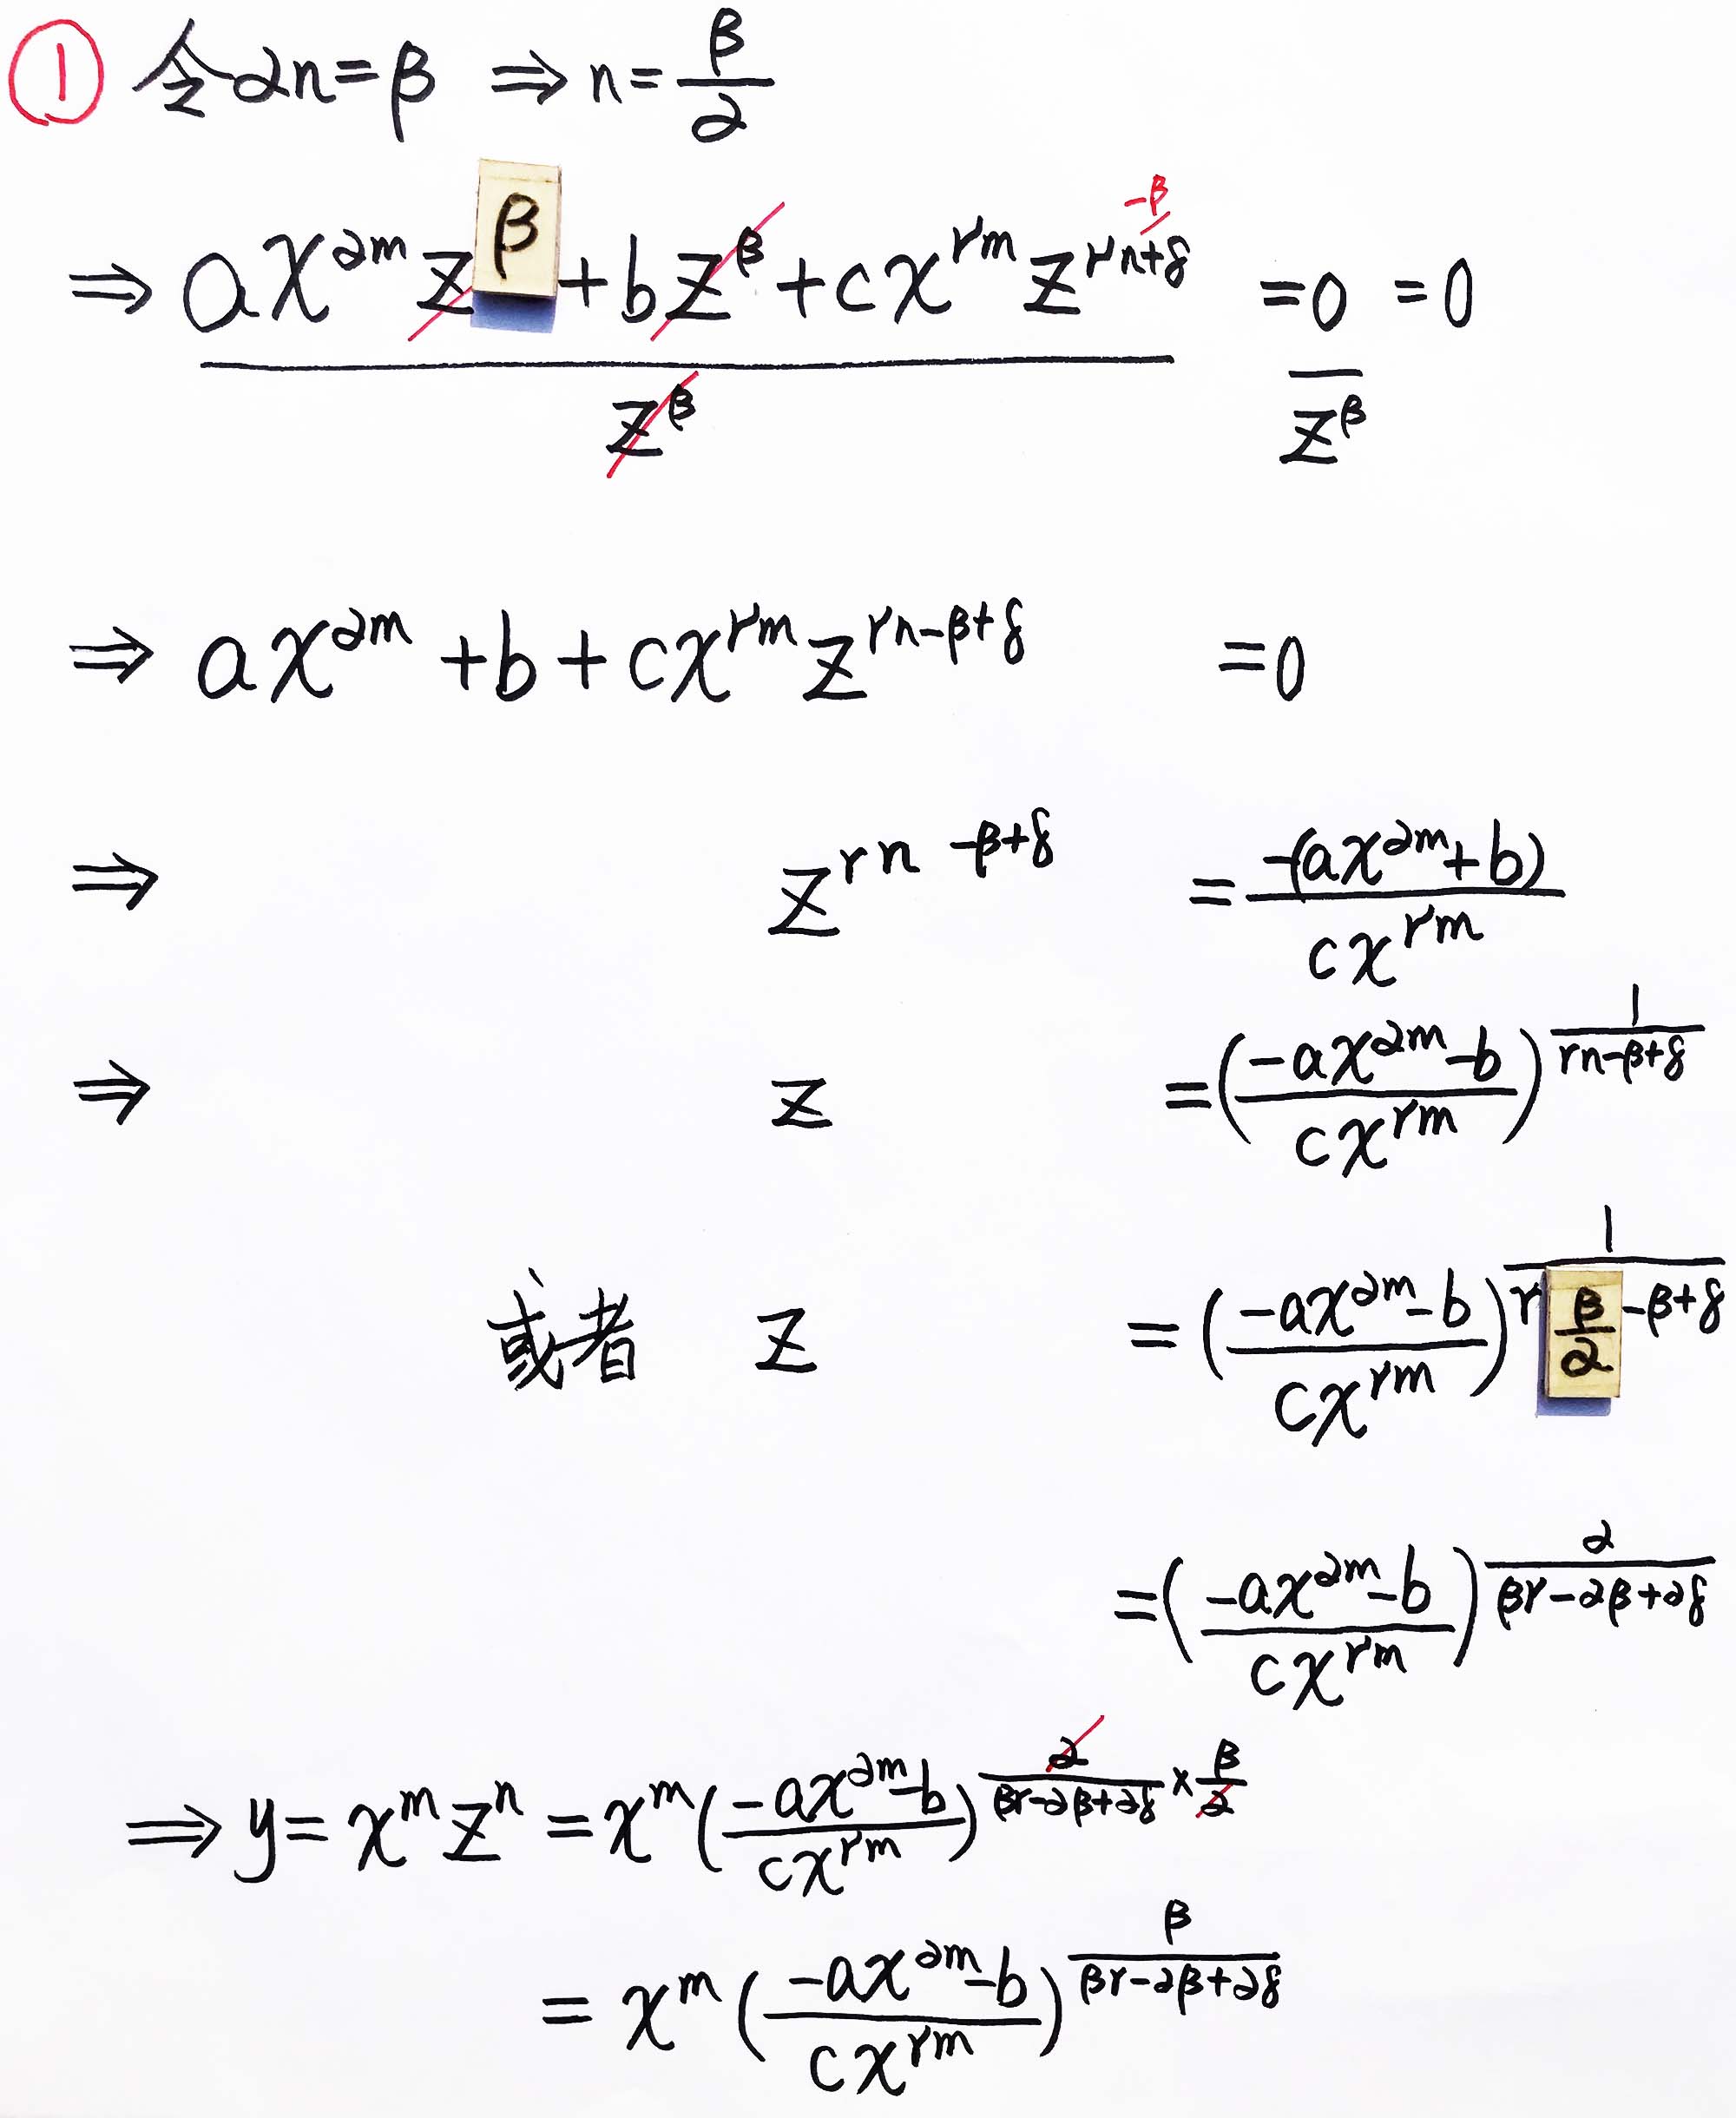 ① 令αn=β ⇒ n=β/α
⇒ (ax^{αm} z^{β} + bz^{β} + cx^{γm} z^{γn+δ -β})/z^{β} =0/z^{β} =0
⇒ ax^{αm} +b+cx^{γm} z^{γn-β+δ} =0
⇒ z^{γn -β+δ} = -(ax^{αm}+b)/(cx^{γm})
⇒ z =((-ax^{αm}-b)/(cx^{γm}))^{1/(γn-β+δ)}
或者 z =((-ax^{αm}-b)/(cx^{γm}))^{1/(γ β/α -β+δ)}
=((-ax^{αm}-b)/(cx^{γm}))^{α/(βγ-αβ+αδ)}
⇒ y= x^{m} z^{n} = x^{m}((-ax^{αm}-b)/(cx^{γm}))^{α/(βγ-αβ+αδ) × β/α}
= x^{m}((-ax^{αm}-b)/(cx^{γm}))^{β/(βγ-αβ+αδ)}